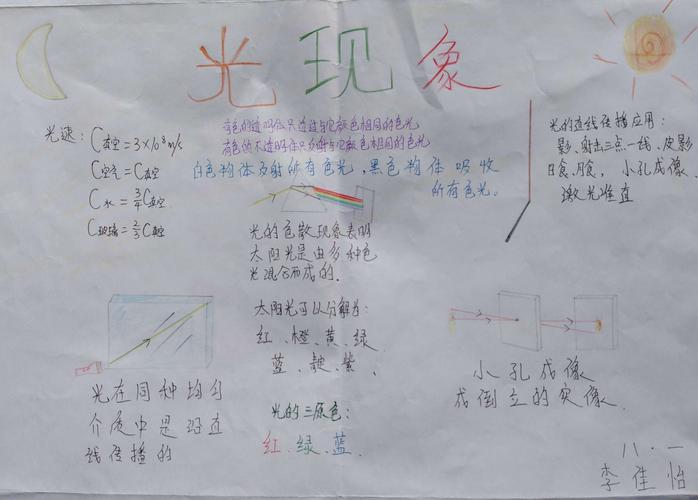 光现象
光速：C真空＝3×10⁸m/s
C空气＝C真空
C水＝3/4C真空
C玻璃＝2/3C真空
有色的透明体只透过与它颜色相同的色光
有色的不透明体只反射与它颜色相同的色光
白色物体反射所有色光，黑色物体吸收
所有色光。
光的色散现象表明
太阳光是由多种色
光混合而成的.
太阳光可以分解为：
红、橙、黄、绿、
蓝、靛、紫、
光的三原色：
红、绿、蓝、
光的直线传播应用：
影、射击三点一线、皮影
日食、月食，小孔成像、
激光准直
光在同种均匀
介质中是沿直
线传播的
小孔成像
成倒立的实像.
八·一
李佳怡